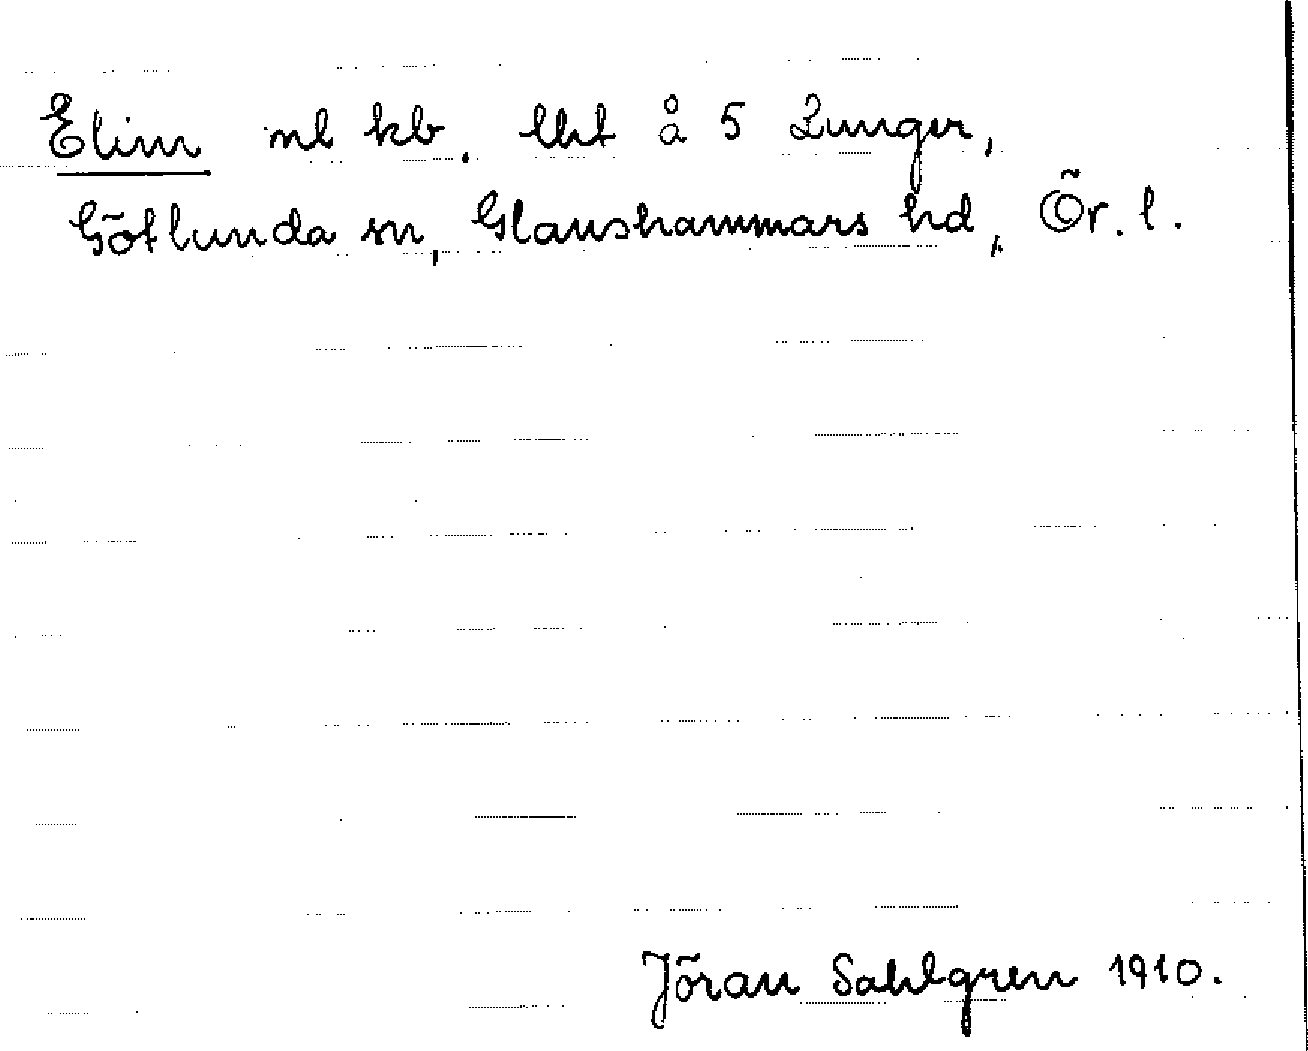 Elim nl kb. lht å 5 Lunger,
Götlunda sn, Glanshammars hd, Ör. l.
Jöran Sahlgren 1910.